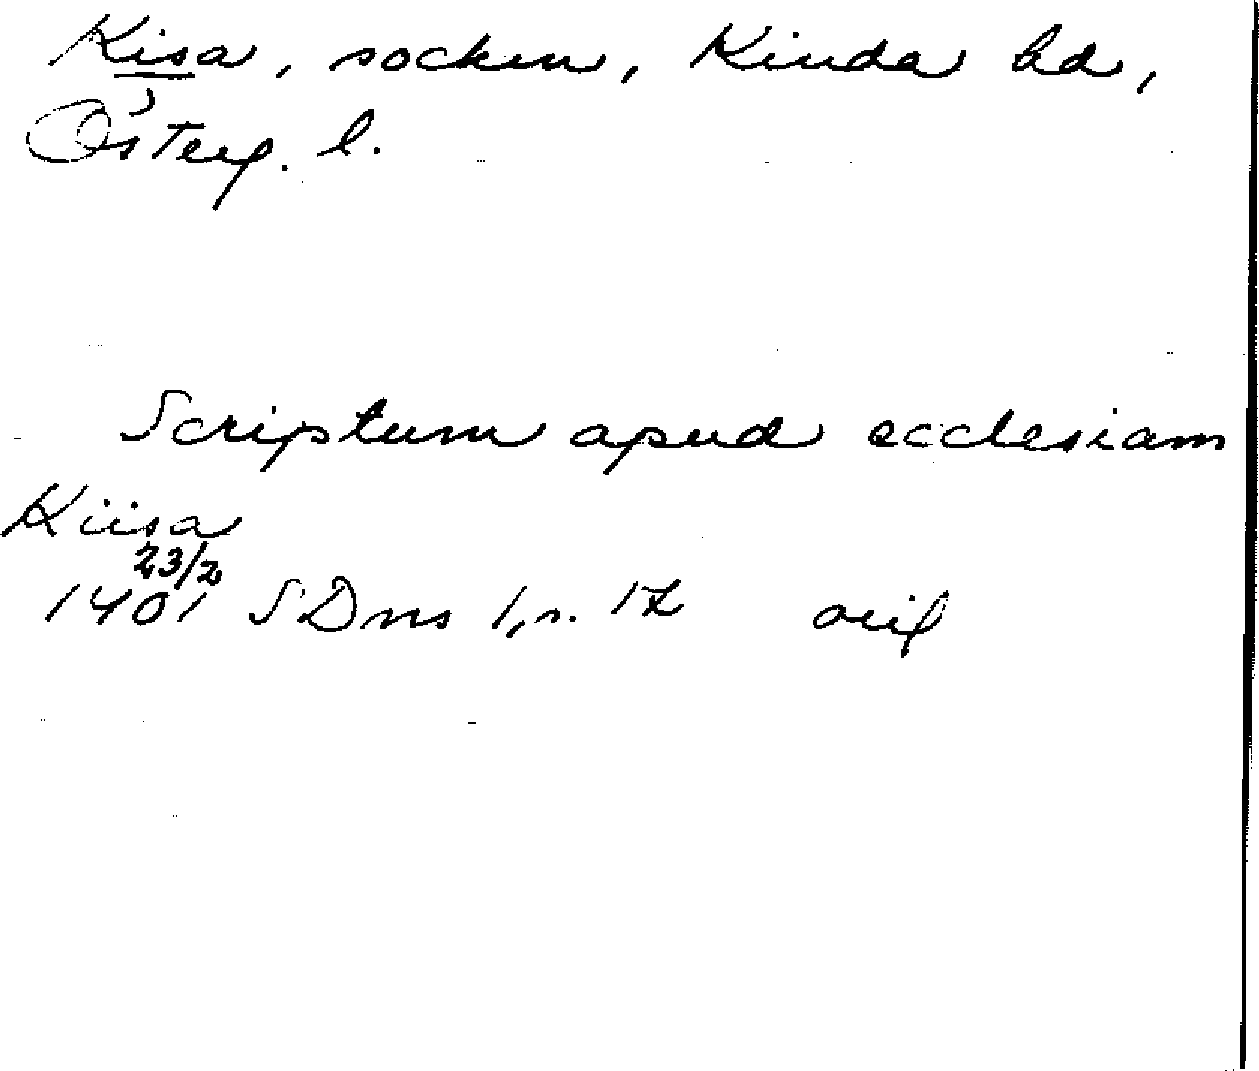 Kisa, socken, Kinda hd,
Österg. l.
Scriptum apud ecclesiam
Kiisa
23/2
1401 SDns 1, s. 17 orig